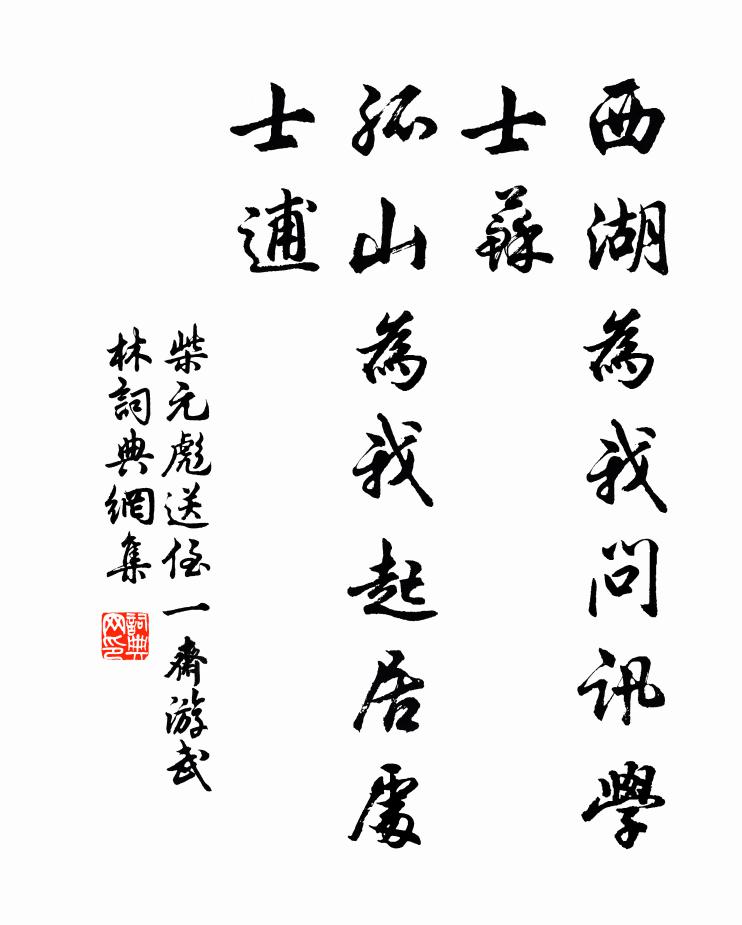 西湖為我問訊學
士蘇
孤山為我起居處
士逋
柴元彪送侄一齋游武
林詞典網集
詞典
网印